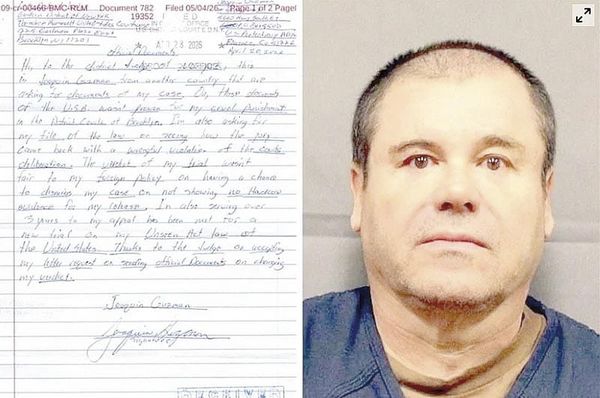 09-cr-00466-BMC-RLM Document 782 Filed 05/04/26 Page 1 of 2 Page
19352
OFFICE
Brooklyn NY 11201
official Documents
Hi, to the district Judge this
is Joaquin Guzman from another country that are
asking for documents of my case. Do, these documents
of the U.S.B. wasn't proven for my cruel punishment
in the District Courts of Brooklyn. I'm also asking for
my file of the law on seeing how the jury
came back with a wrongful violation of the courts
deliberation. The verdict of my trial wasn't
fair to my foreign policy on having a chance
to dismiss my case on not showing no Hardcore
evidence for my release. I'm also serving over
years to my appeal has been met for a
new trial on my Unseen Act law of
the United States. Thanks to the Judge on accepting
my letter request on sending official Documents on changing
my verdict.
Joaquin Guzman
Joaquin Guzman
signature